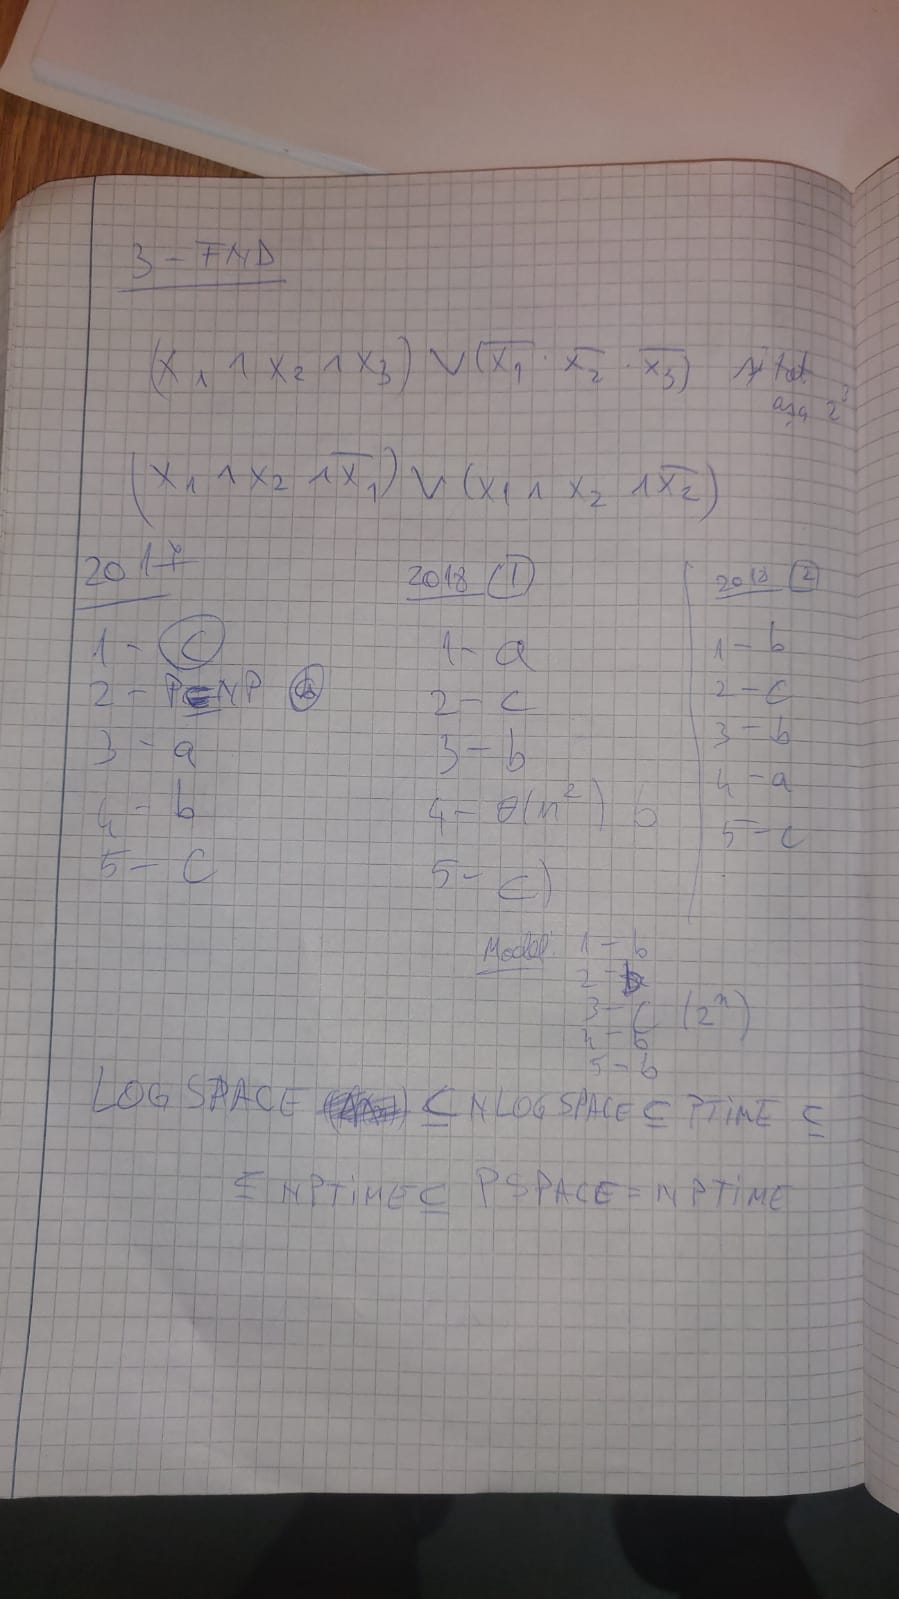 3 - FND
(x₁ ∧ x₂ ∧ x₃) ∨ (x̅₁ · x̅₂ · x̅₃) și tot
așa 2³
(x₁ ∧ x₂ ∧ x̅₁) ∨ (x₁ ∧ x₂ ∧ x̅₂)
2017
1 - c
2 - P⊆NP
3 - a
4 - b
5 - c
2018 (1)
1 - a
2 - c
3 - b
4 - θ(n²) b
5 - c)
2018 (2)
1 - b
2 - c
3 - b
4 - a
5 - c
Model: 1 - b
2 - b
3 - c (2ⁿ)
4 - b
5 - b
LOGSPACE ⊆ NLOGSPACE ⊆ PTIME ⊆
⊆ NPTIME ⊆ PSPACE = NPTIME